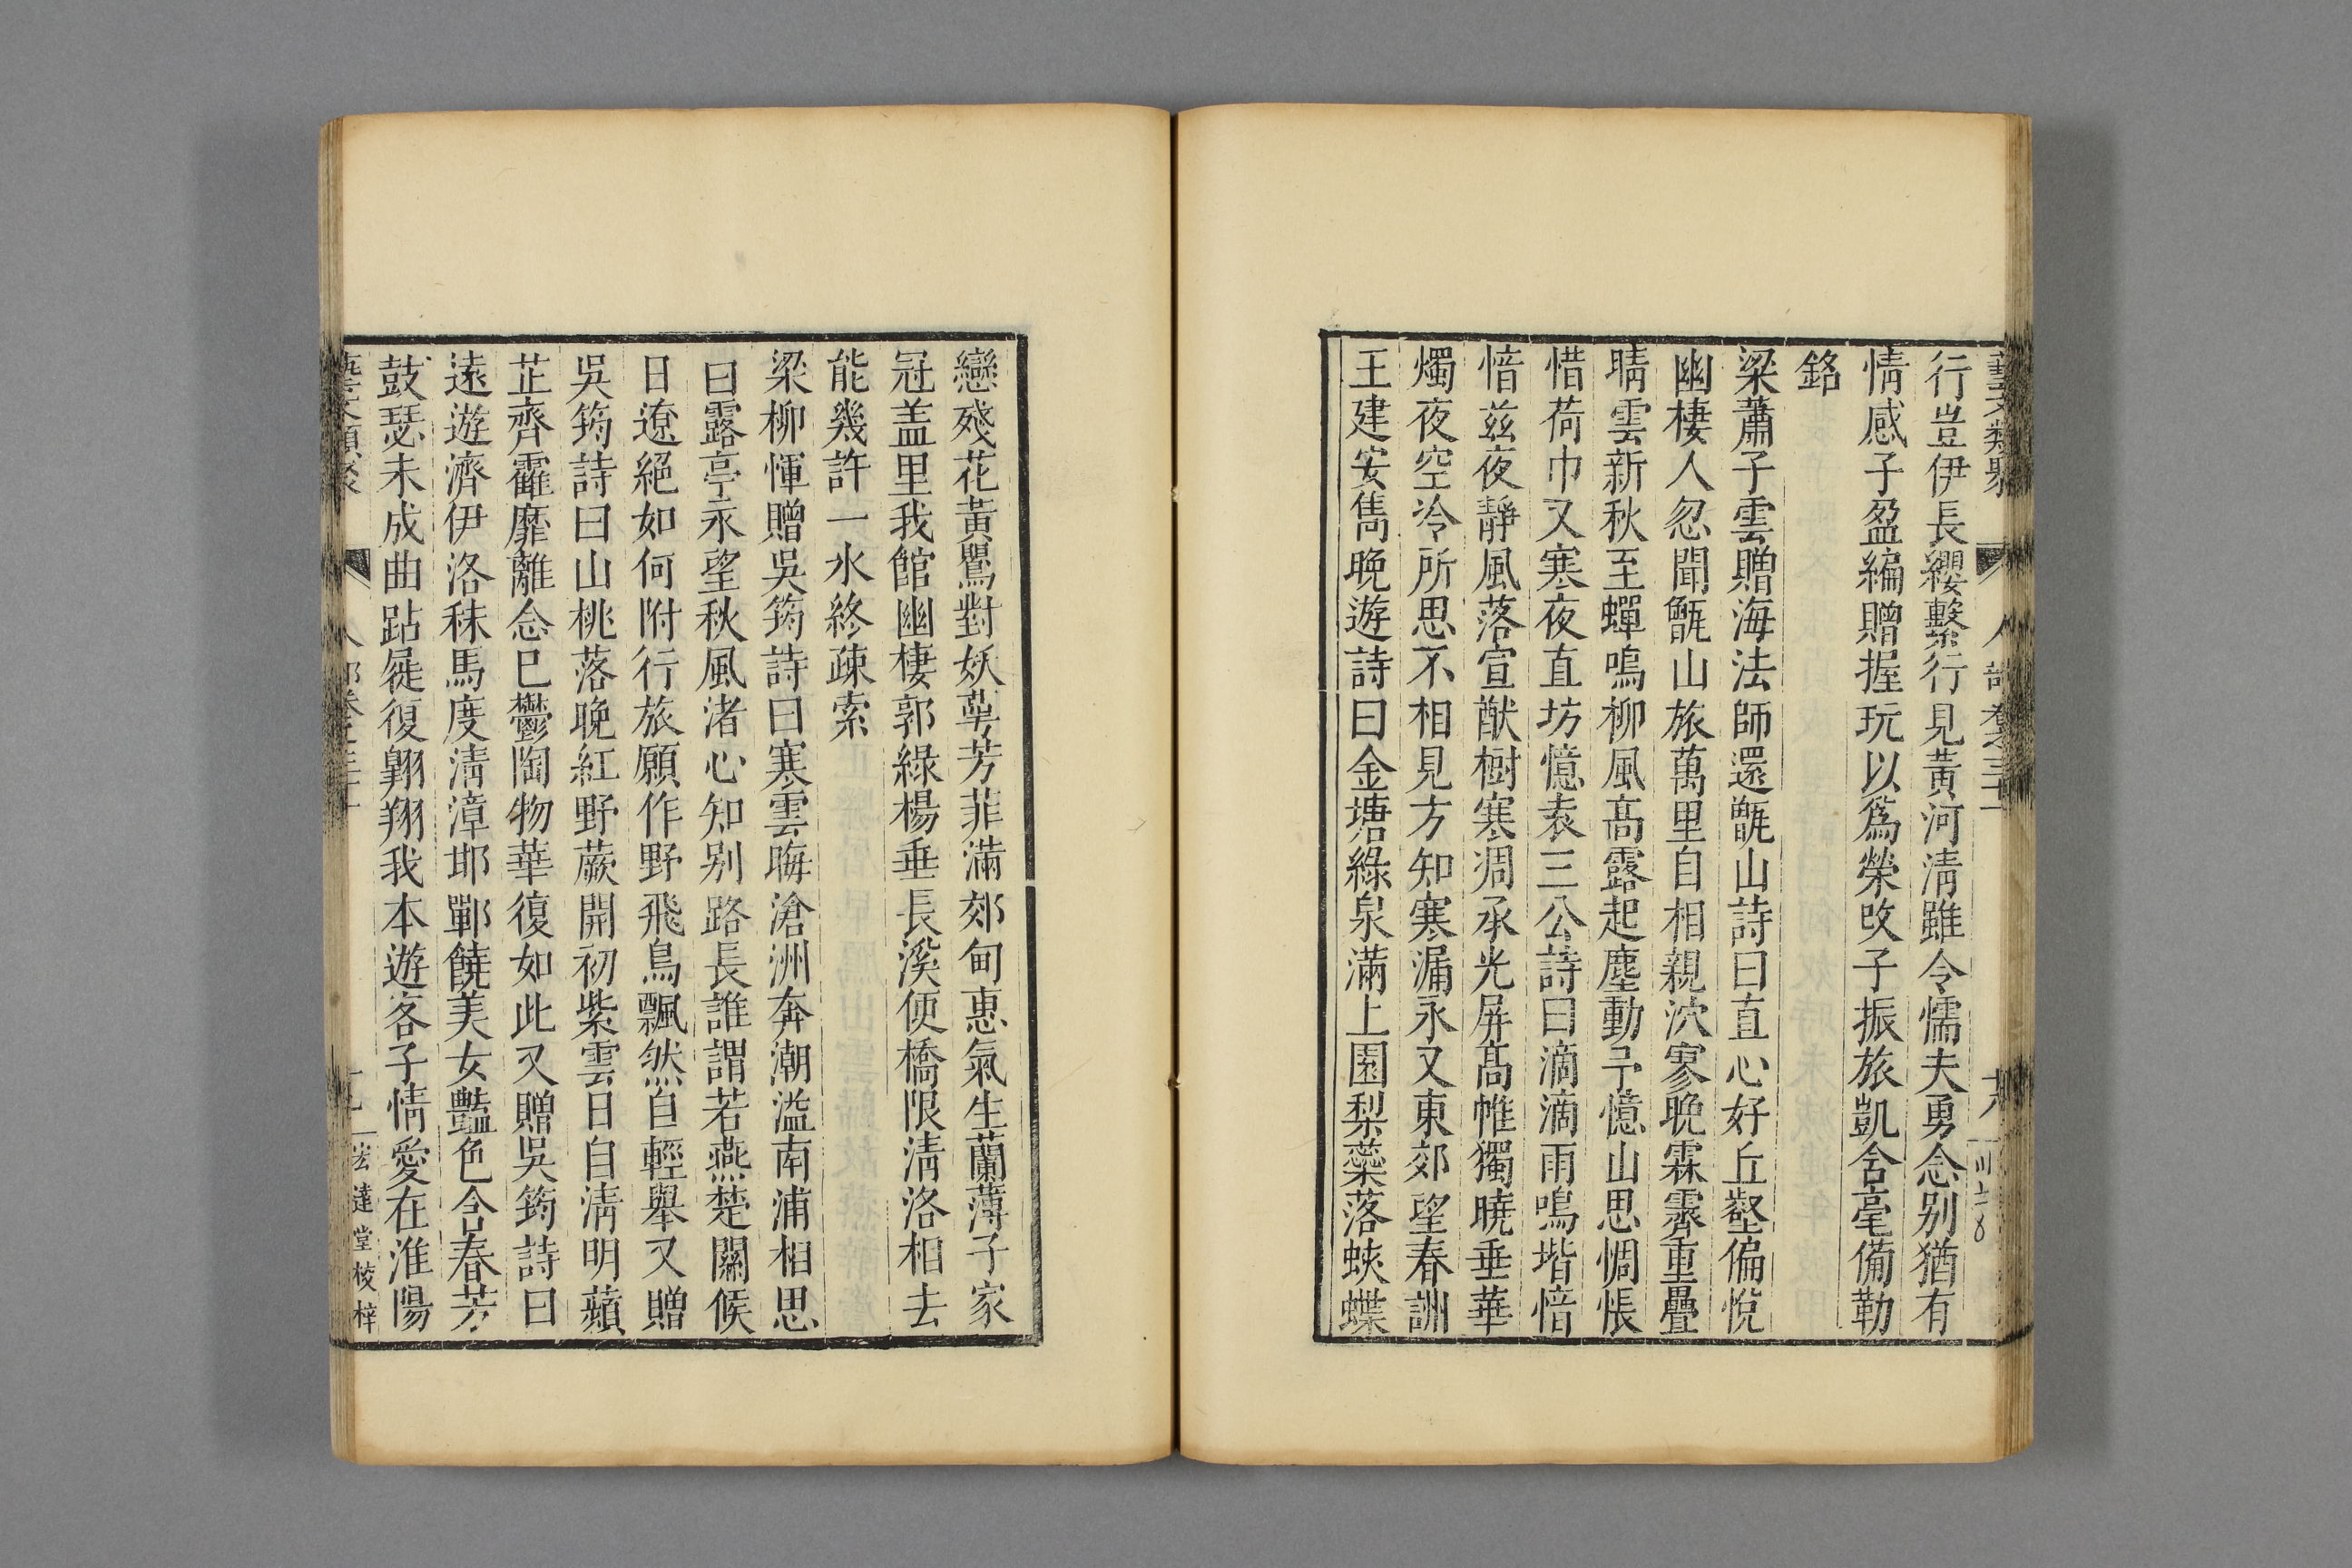 藝文類聚 人部卷三十一 十八
行豈伊長纓繫行見黃河淸雖令懦夫勇念别猶有
情感子盈編贈握玩以爲榮攺子振旅凱含毫備勒
銘
梁蕭子雲贈海法師還甑山詩曰直心好丘壑偏悅
幽棲人忽聞甑山旅萬里自相親泬寥晚霖霽重疊
晴雲新秋至蟬鳴柳風髙露起塵動予憶山思惆悵
惜荷巾又寒夜直坊憶袁三公詩曰滴滴雨鳴堦愔
愔兹夜靜風落宣猷樹寒凋承光屏髙帷獨曉垂華
燭夜空冷所思不相見方知寒漏永又東郊望春詶
王建安雋晚遊詩曰金塘綠泉滿上園梨蘂落蛺蝶
戀殘花黃鸎對妖蕚芳菲滿郊甸惠氣生蘭薄子家
冠盖里我館幽棲郭綠楊垂長溪便橋限淸洛相去
能幾許一水終疎索
梁柳惲贈吳筠詩曰寒雲晦滄洲奔潮溢南浦相思
曰露亭永望秋風渚心知别路長誰謂若燕楚關候
日遼絕如何附行旅願作野飛鳥飄然自輕舉又贈
吳筠詩曰山桃落晚紅野蕨開初紫雲日自淸明蘋
芷齊靃靡離念巳鬱陶物華復如此又贈吳筠詩曰
遠遊濟伊洛秣馬度淸漳邯鄲饒美女豔色含春芳
鼓瑟未成曲跕屣復翺翔我本遊客子情愛在淮陽
藝文類聚 人部卷三十一 十九 宏達堂校梓